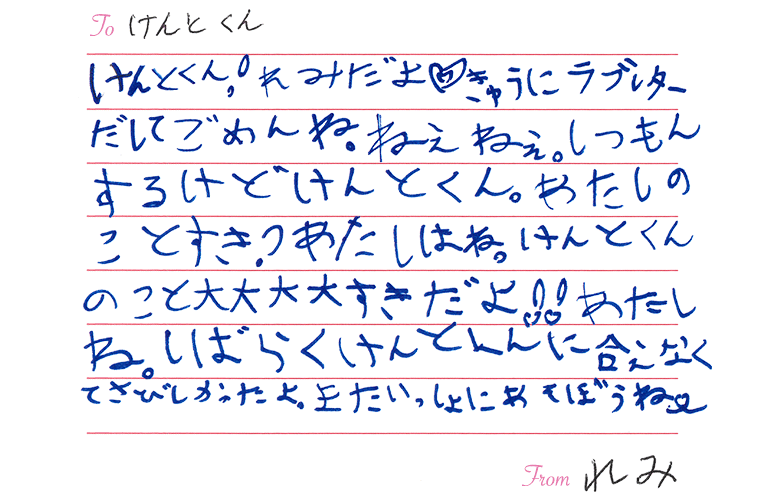 To けんとくん
けんとくん,! れみだよ♡きゅうにラブレター
だしてごめんね。ねーえねぇ。しつもん
するけどけんとくん。あたしの
ことすき?あたしはね。けんとくん
のこと大大大大すきだよ!!あたし
ね。しばらくけんとくんに合えなく
てさびしかったよ。またいっしょにあそぼうね
From れみ